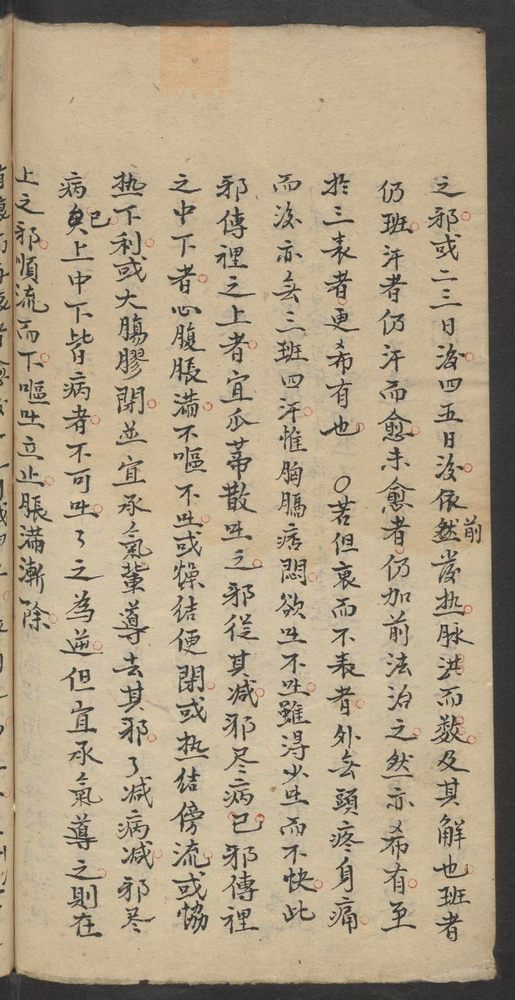 之邪或二三日後四五日後依然前發热脉洪而数及其解也班者
仍班汗者仍汗而愈未愈者仍加前法治之然亦希有至
於三表者更希有也○若但裏而不表者外無頭疼身痛
而後亦無三班四汗惟胸膈痞悶欲吐不吐雖得少吐而不快此
邪傳裡之上者宜瓜蒂散吐之邪從其减邪尽病已邪傳裡
之中下者心腹脹满不嘔不吐或燥结便閉或热结傍流或恊
热下利或大膓膠閉並宜承氣輩導去其邪了减病减邪尽
病已上中下皆病者不可吐了之為逆但宜承氣導之則在
上之邪順流而下嘔吐立止脹滿漸除